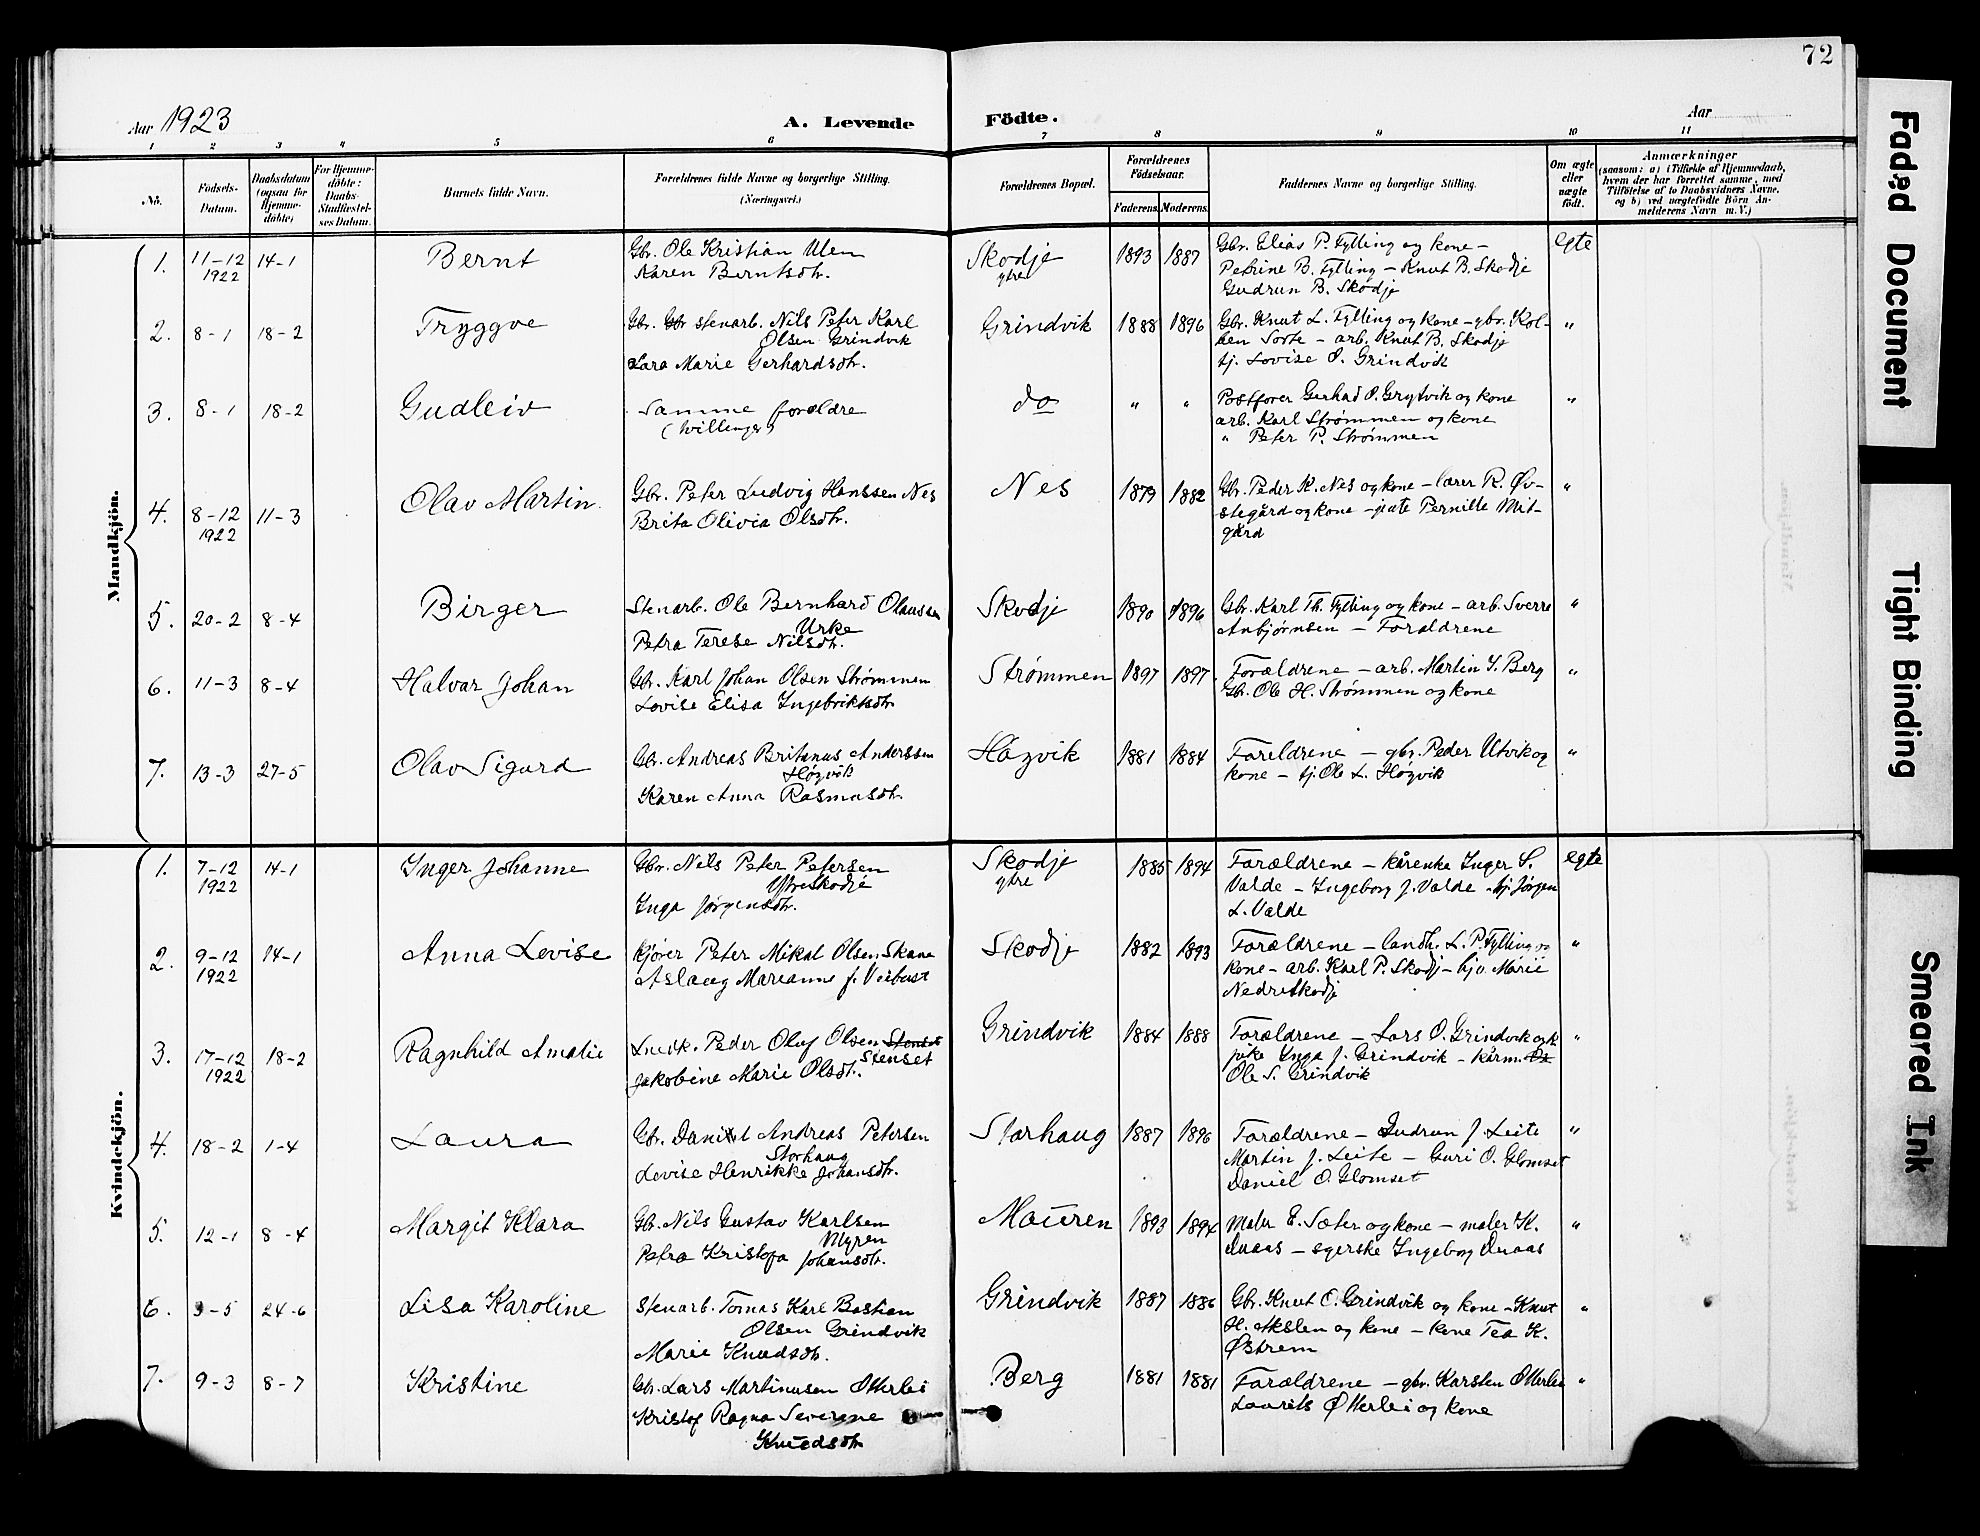 72
Aar 1923
A. Levende Födte.
Aar
1 2 3 4 5 6 7 8 9 10 11
No.
Födsels-Datum.
Daabsdatum (ogsaa for Hjemmedöbte)
For Hjemmedöbte: Daabs-Stadfæstelses Datum.
Barnets fulde Navn.
Forældrenes fulde Navne og borgerlige Stilling. (Næringsvei.)
Forældrenes Bopæl.
Forældrenes Födselsaar.
Faderens. Moderens.
Faddernes Navne og borgerlige Stilling.
Om ægte eller uægte födt.
Anmærkninger
(saasom: a) i Tilfælde af Hjemmedaab,
hvem der har forrettet samme, med
Tilföielse af to Daabsvidners Navne,
og b) ved uægtefödte Börn Anmelderens Navn m. V.)
Mandkjön.
1. 11-12 1922 14-1 Bernt
Gbr. Ole Kristian Ulen
Karen Berntsdtr.
Skodje ytre 1893 1887
Gbr. Elias P. Fylling og kone -
Petrine B. Fylling - Knut B. Skodje
Gudrun B. Skodje
egte
2. 8-1 18-2 Tryggve
Gbr. Gbr stenarb. Nils Peter Karl
Olsen Grindvik
Lara Marie Gerhardsdtr.
Grindvik 1888 1896
Gbr. Knut L. Fylling og kone - gbr. Kol-
ben Sorte - arb. Knut B. Skodje
tj. Lovise O. Grindvik
"
3. 8-1 18-2 Gudleiv
Samme forældre
(tvillinger)
do " "
Postfører Gerhad O. Grytvik og kone
arb. Karl Strømmen og kone
" Peter P. Strømmen
"
4. 8-12 1922 11-3 Olav Martin
Gbr. Peter Ludvig Hanssen Nes
Brita Olivia Olsdtr.
Nes 1879 1882
Gbr. Peder K. Nes og kone - lærer R. Øv-
stegård og kone - pike Pernille Mit-
gård
"
5. 20-2 8-4 Birger
Stenarb. Ole Bernhard Olaussen
Urke
Petra Terese Nilsdtr.
Skodje 1890 1896
Gbr. Karl Th. Fylling og kone - arb. Sverre
Anbjørnsen - Forældrene
"
6. 11-3 8-4 Halvar Johan
Gbr. Karl Johan Olsen Strømmen
Lovise Elisa Ingebriktsdtr.
Strømmen 1897 1897
Forældrene - arb. Martin I. Berg
Gbr. Ole H. Strømmen og kone
"
7. 13-3 27-5 Olav Sigurd
Gbr. Andreas Britanus Anderssen
Høgvik
Karen Anna Rasmusdtr.
Høgvik 1881 1884
Foreldrene - gbr. Peder Utvik og
kone - tj. Ole L. Høgvik
"
Kvindekjön.
1. 7-12 1922 14-1 Inger Johanne
Gbr. Nils Peter Petersen
Ytreskodje
Inga Jørgensdtr.
Skodje ytre 1885 1894
Forældrene - kårenke Inger S.
Valde - Ingeborg J. Valde - tj. Jørgen
L. Valde
egte
2. 9-12 1922 14-1 Anna Lovise
kjører Peter Mikal Olsen Skane
Aslaug Marianne f. Viebust
Skodje 1882 1893
Forældrene - landh. L. P. Fylling og
kone - arb. Karl P. Skodj - hju. Marie
Nedreskodje
"
3. 17-12 1922 18-2 Ragnhild Amalie
Snedk. Peder Oluf Olsen Stenset
Stenset
Jakobine Marie Olsdt.
Grindvik 1884 1888
Forældrene - Lars O. Grindvik og k
pike Inga J. Grindvik - kårm.
Ole S. Grindvik
"
4. 18-2 1-4 Laura
Gbr. Daniel Andreas Petersen
Storhaug
Lovise Henrikke Johansdtr.
Storhaug 1887 1896
Forældrene - Gudrun J. Leite
Martin J. Leite - Guri O. Glomset
Daniel O. Glomset
"
5. 12-1 8-4 Margit Klara
Gbr. Nils Gustav Karlsen
Myren
Petra Kristofa Johansdtr.
Mauren 1893 1894
Maler E. Sæter og kone - maler K.
Duaas - syerske Ingeborg Duaas
"
6. 3-5 24-6 Lisa Karoline
Stenarb. Tomas Karl Bastian
Olsen Grindvik
Marie Knudsdtr.
Grindvik 1887 1886
Gbr. Knut O. Grindvik og kone - Knut
H. Akslen og kone - kone Tea K.
Østrem
"
7. 9-3 8-7 Kristine
Gbr. Lars Martinusen Otterlei
Kristof Ragna Severine
Knudsdtr
Berg 1881 1881
Forældrene - gbr. Karsten Otterlei
Laurits Otterlei og kone
"
Faded Document
Tight Binding
Smeared Ink